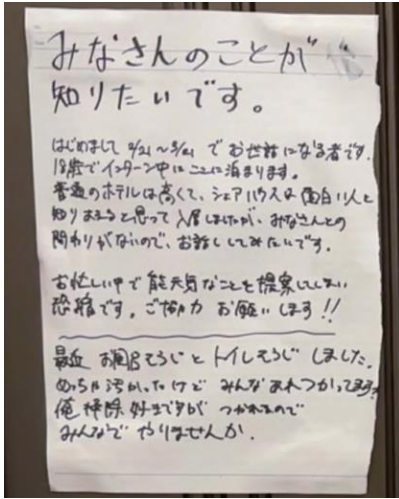 みなさんのことが
知りたいです。
はじめまして 2/21〜3/21 でお世話になる者です.
18歳でインターン中にここに泊まります。
普通のホテルは高くて、シェアハウスは面白い人と
知りあえると思って入居しましたが、みなさんとの
関わりがないので、お話ししてみたいです。
お忙しい中で能天気なことを提案してしまい
恐縮です。ご協力 お願いします!!
最近 お風呂そうじとトイレそうじ しました.
めっちゃ汚かったけど みんなあれつかってます?
俺 掃除 好きですが つかれるので
みんなで やりませんか.